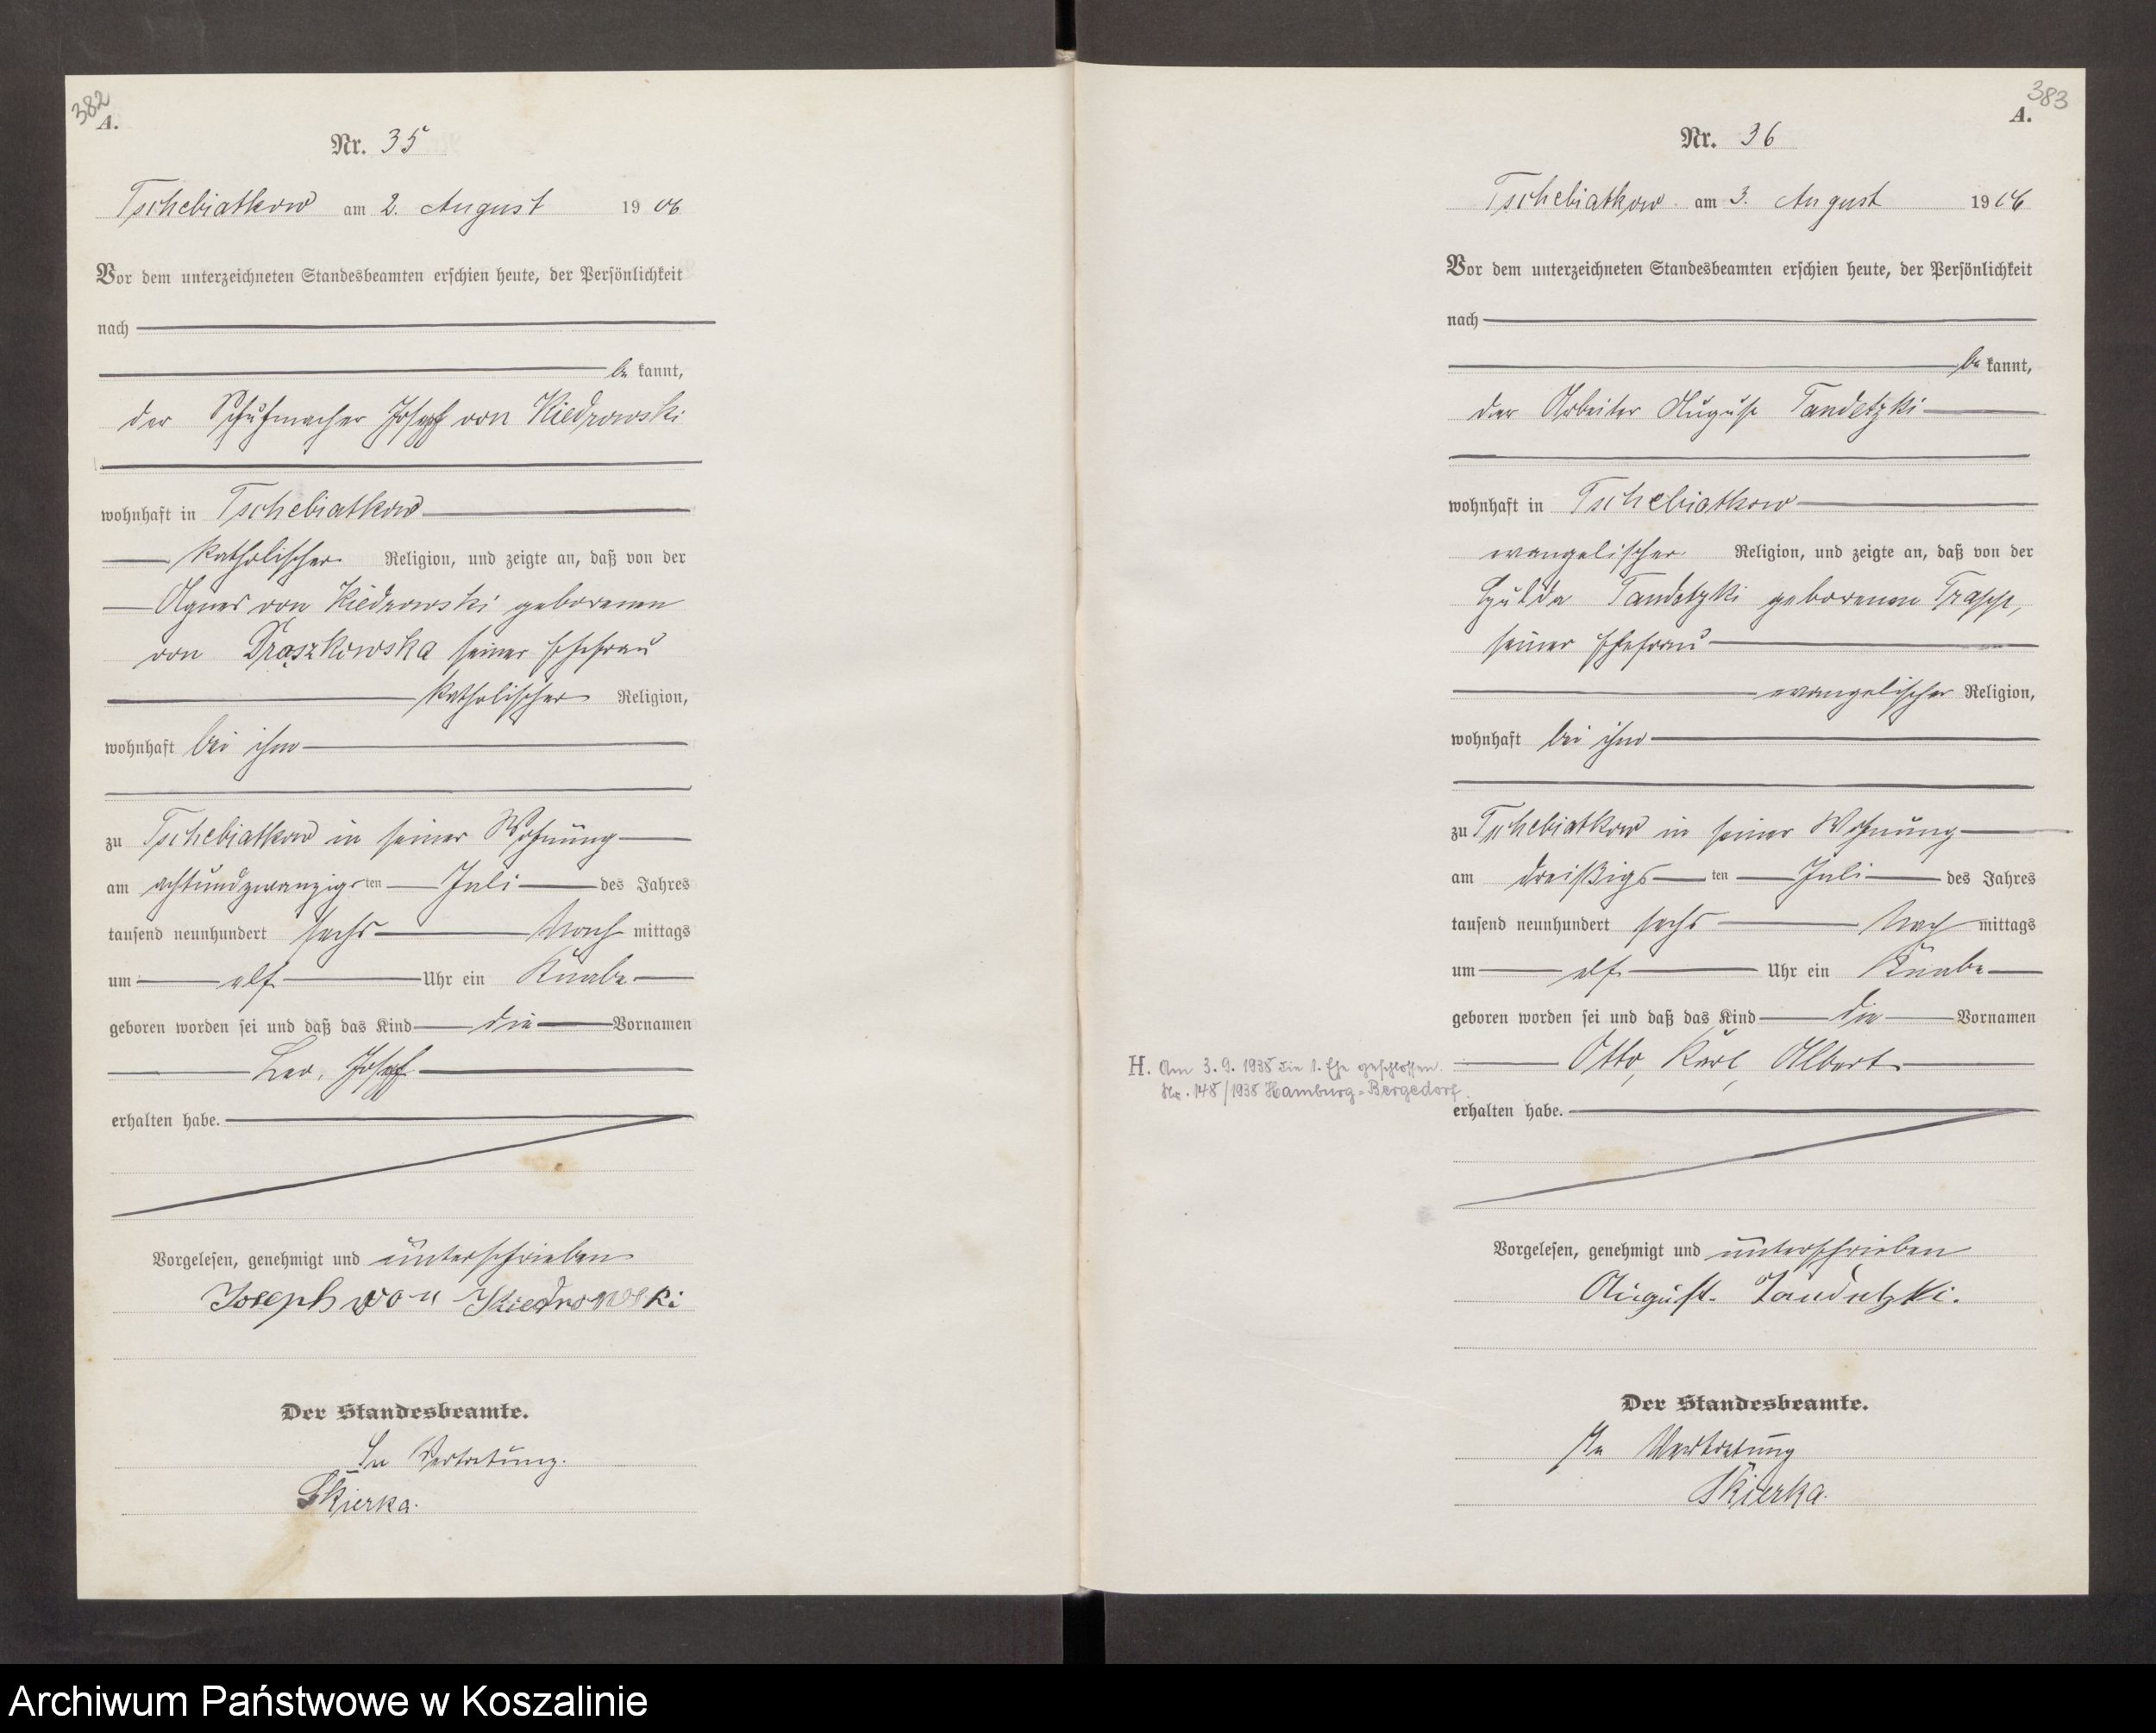 382
A.
Nr. 35
Tschebiatkow am 2. August 1906
Vor dem unterzeichneten Standesbeamten erschien heute, der Persönlichkeit
nach
be kannt,
der Schuhmacher Josef von Kiedrowski
wohnhaft in Tschebiatkow
katholischer Religion, und zeigte an, daß von der
Agnes von Kiedrowski geborenen
von Draszkowska seiner Ehefrau
katholischer Religion,
wohnhaft bei ihm
zu Tschebiatkow in seiner Wohnung
am achtundzwanzigsten Juli des Jahres
tausend neunhundert sechs Nach mittags
um elf Uhr ein Knabe
geboren worden sei und daß das Kind die Vornamen
Leo, Josef
erhalten habe.
Vorgelesen, genehmigt und unterschrieben
Joseph von Kiedrowski
Der Standesbeamte.
In Vertretung.
Skierka.
383
A.
Nr. 36
Tschebiatkow am 3. August 1906
Vor dem unterzeichneten Standesbeamten erschien heute, der Persönlichkeit
nach
be kannt,
der Arbeiter August Tandetzki
wohnhaft in Tschebiatkow
evangelischer Religion, und zeigte an, daß von der
Tandetzki geborenen
seiner Ehefrau
evangelischer Religion,
wohnhaft bei ihm
zu Tschebiatkow in seiner Wohnung
am dreißigsten Juli des Jahres
tausend neunhundert sechs Nach mittags
um elf Uhr ein Knabe
geboren worden sei und daß das Kind die Vornamen
Otto, Karl, Albert
erhalten habe.
H. Am 3. 9. 1938 die 1. Ehe geschlossen.
Nr. 148/1938 Hamburg-Bergedorf.
Vorgelesen, genehmigt und unterschrieben
August Tandetzki.
Der Standesbeamte.
In Vertretung
Skierka.
Archiwum Państwowe w Koszalinie